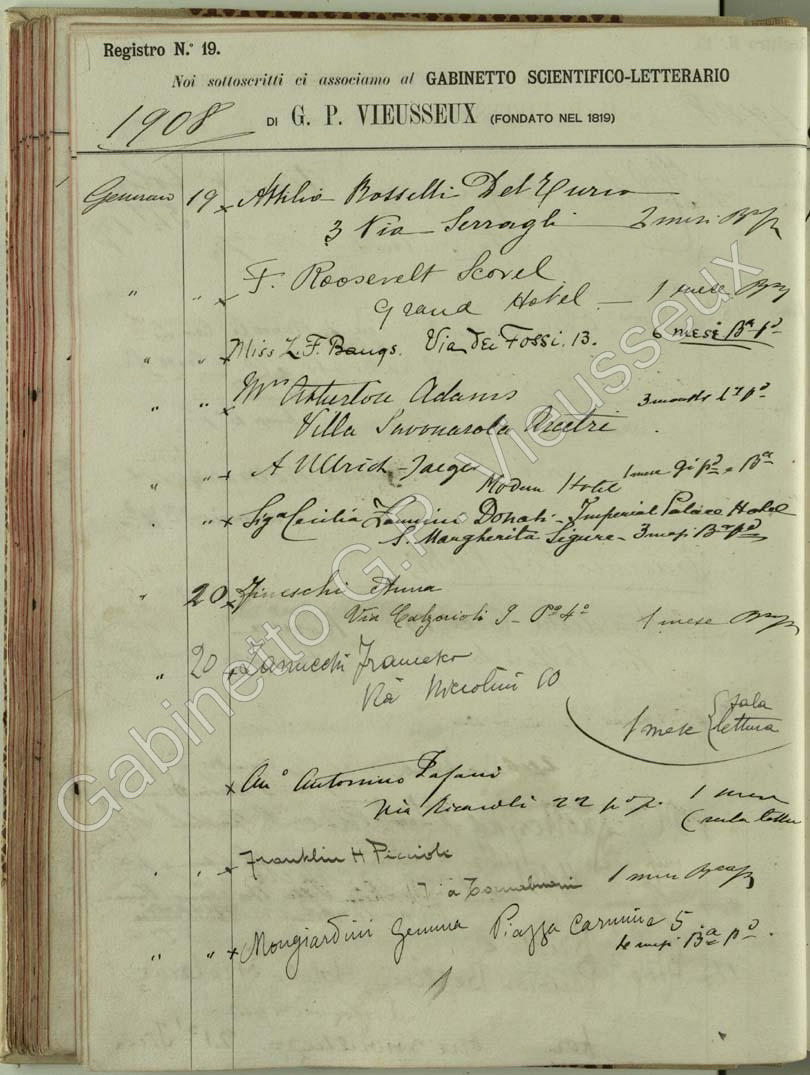 Registro N.° 19.
Noi sottoscritti ci associamo al GABINETTO SCIENTIFICO-LETTERARIO
1908 DI G. P. VIEUSSEUX (FONDATO NEL 1819)
Gennaio 19 x Attilio Rosselli Del Turco
3 Via Serragli 2 mesi
" " x F. Roosevelt Scovel
Grand Hotel — 1 mese
" " x Miss L. F. Bangs. Via dei Fossi. 13. 6 mesi Bª pº
" " x Mrs Atherton Adams 3 months
Villa Savonarola Arcetri
" " x A Ullrich-Jaeger
Modern Hotel 1 mese
" x Sigª Cecilia Donati - Imperial Palace Hotel
S. Margherita Ligure - 3 mesi
" 20 x Fineschi Anna
Via Calzaioli 9 - Pº 4º 1 mese
" 20 x Francesco
Via Niccolini 10
1 mese { sala
lettura
x Antonino
Via Ricasoli 22 pº pº. 1 mese
" " x Franklin H
17 Via Tornabuoni 1 mese
" " x Mongiardini Gemma Piazza Carmine 5
mesi Bª pº.
Gabinetto G.P. Vieusseux